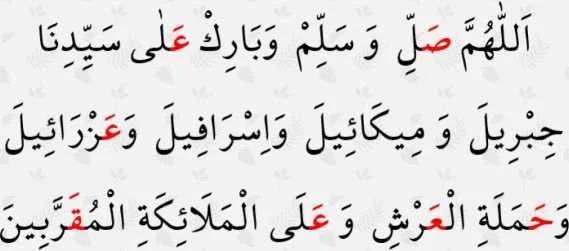 اَللّٰهُمَّ صَلِّ وَ سَلِّمْ وَبَارِكْ عَلٰى سَيِّدِنَا
جِبْرِيلَ وَ مِيكَائِيلَ وَاِسْرَافِيلَ وَعَزْرَائِيلَ
وَحَمَلَةِ الْعَرْشِ وَ عَلَى الْمَلَائِكَةِ الْمُقَرَّبِينَ